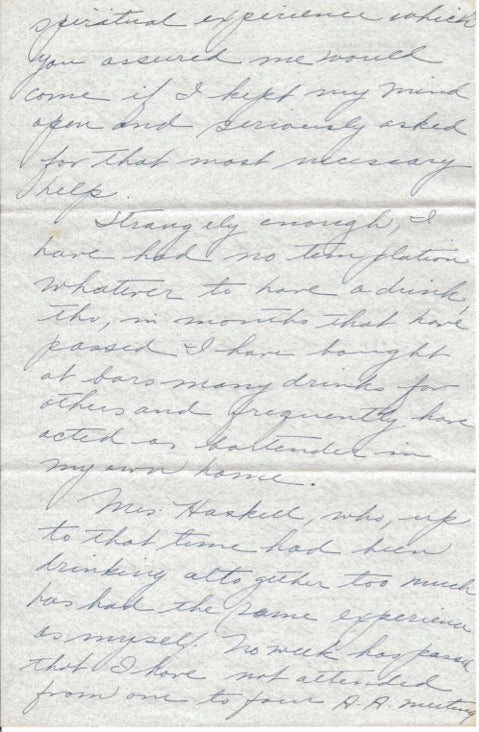 spiratual experience which
you assured me would
come if I kept my mind
open and seriously asked
for that most necessary
help.
Strangely enough, I
have had no temptation
whatever to have a drink,
tho, in months that have
passed I have bought
at bars many drinks for
others and frequently have
acted as bartender in
my own home.
Mrs. Haskell, who, up
to that time had been
drinking altogether too much
has had the same experience
as myself. No week has passed
that I have not attended
from one to four A.A. meeting